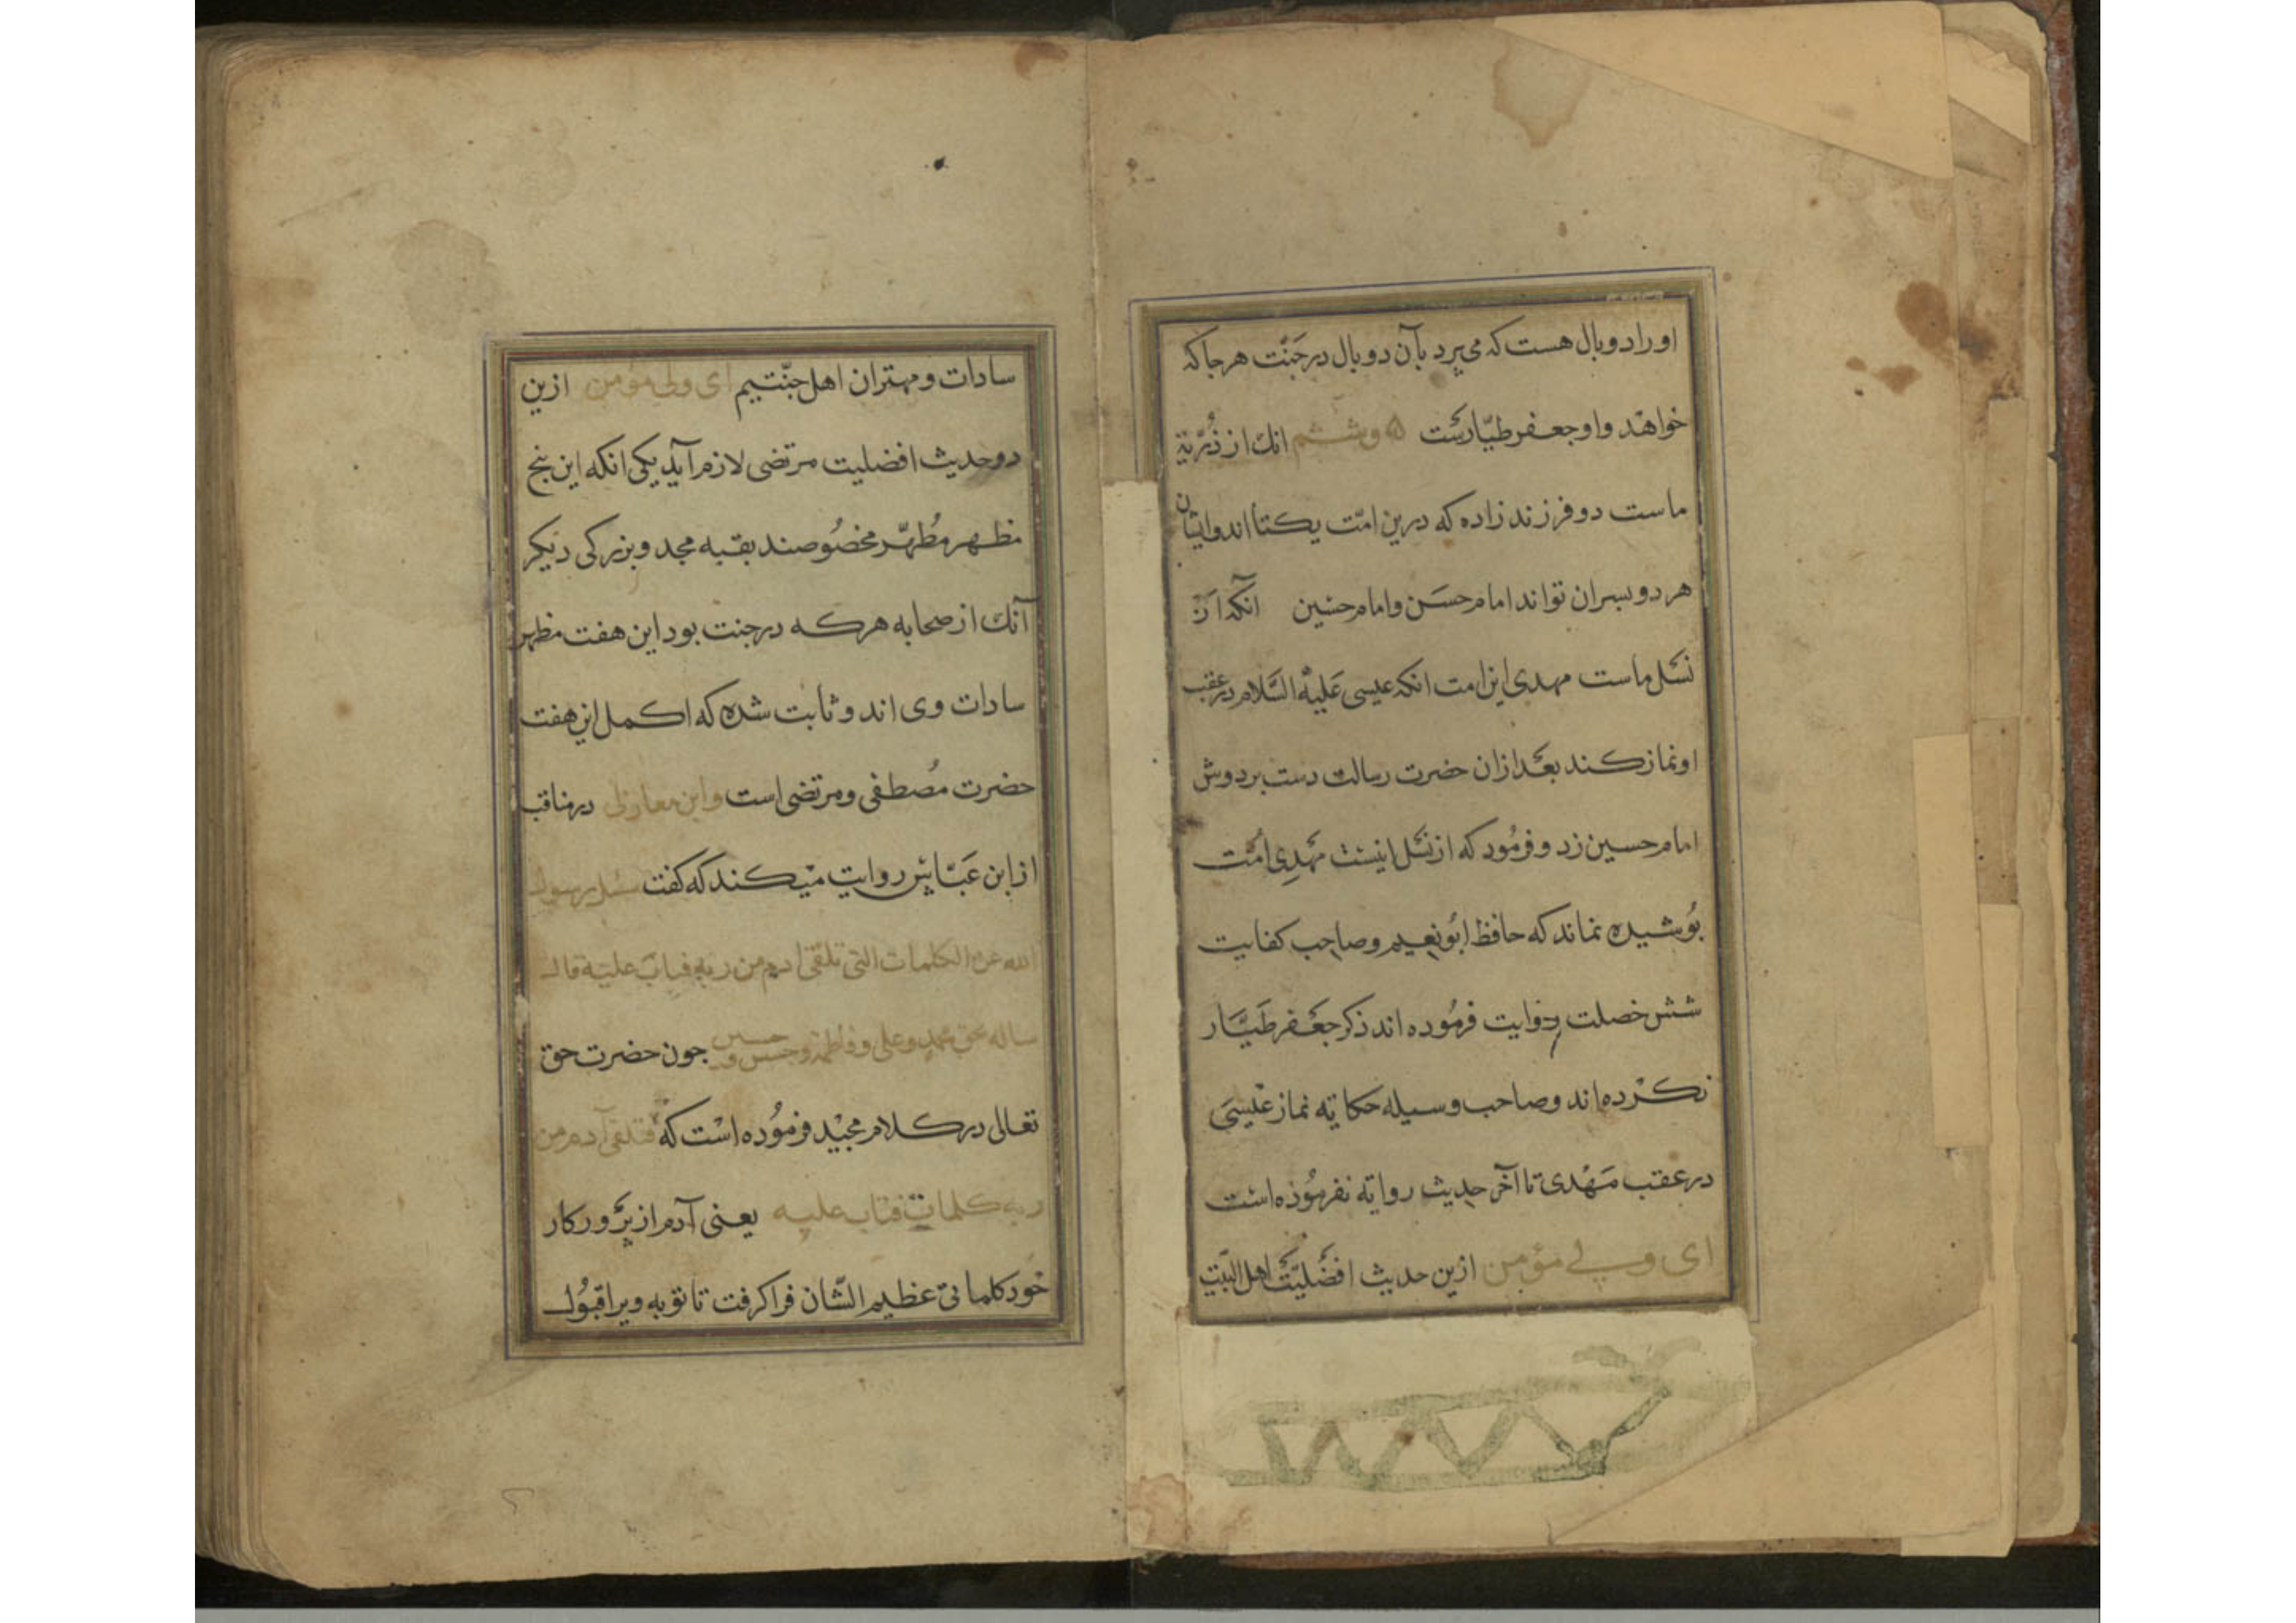 او را دو بال هست که می پرد بآن دو بال در جَنّت هر جا که
خواهد و او جعفر طیّارست ۵ و ششم انک از ذُرّیة
ماست دو فرزند زاده که درین امّت یکتا اند و ایشان
هر دو پسران تو اند امام حسَن و امام حسین انکه از
نسَل ماست مهدی این امت انکه عیسی عَلیهْ السَّلام در عقب
او نماز کند بعَد ازان حضرت رسالت دست بر دوش
امام حسین زد و فرمُود که از نسَل اینست مَهدِی امُت
بُوشیده نماند که حافظ ابُو نعیم و صاحب کفایت
شش خصلت روایت فرمُوده اند ذکر جعَفر طَیَّار
نکرْده اند و صاحب وسیله حکایه نماز عیْسیَ
در عقب مَهْدی تا آخر حدیث روایه نفرمُوده است
ای ولی مؤمن ازین حدیث افضَلیّت اهل البیَت
سادات و مهتران اهل جنّتیم ای ولی مؤمن ازین
دو حدیث افضلیت مرتضی لازم آید یکی انکه این بنج
مظهر مُطهّر مخصُوصند بقبه مجد و بزرکی دیکر
آنک از صحابه هر که در جنت بود این هفت مظهر
سادات وی اند و ثابت شده که اکمل این هفت
حضرت مُصطفی و مرتضی است و ابن مغازلی در مناقب
از ابن عَبّاس روایت میکند که کفت سئل رسول
الله عن الکلمات التی تلقی ادم من ربه فتاب علیه قال
ساله بحق محمد و علی و فاطمه و حسن و حسین جون حضرت حق
تعالی در کلام مجیْد فرمُوده است که فتلقی آدم من
ربه کلمات فتاب علیه یعنی آدم از پرَوركار
خود کلماتی عظیم الشّان فرا کرفت تا توبه ویرا قبُول